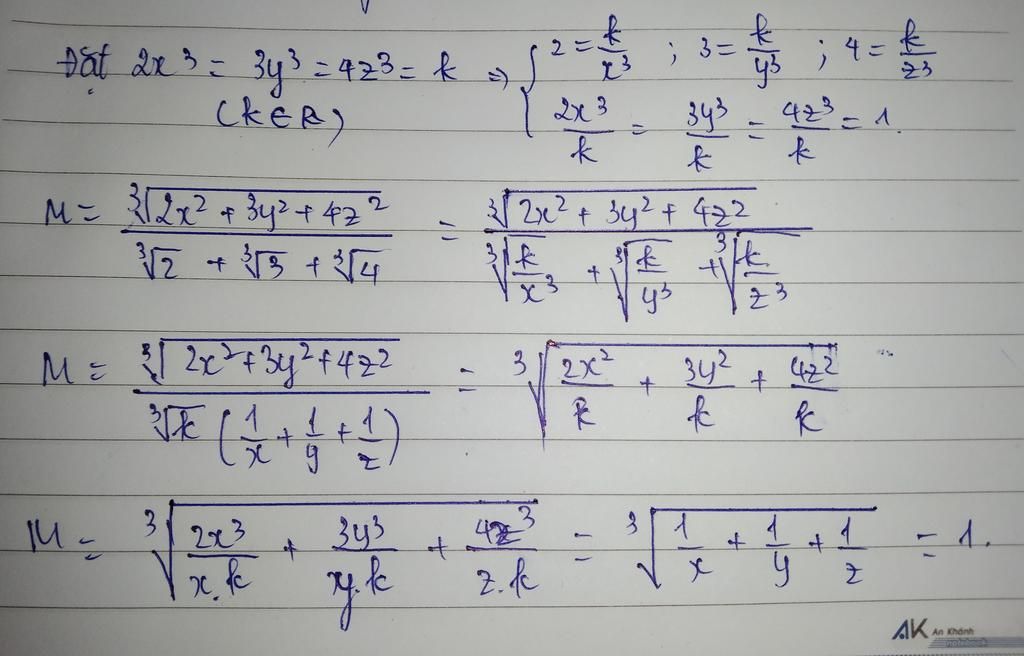 Đặt 2x³ = 3y³ = 4z³ = k ⇒ { 2 = k/x³ ; 3 = k/y³ ; 4 = k/z³
(k ∈ R) 2x³/k = 3y³/k = 4z³/k = 1.
M = ∛(2x² + 3y² + 4z²) / (∛2 + ∛3 + ∛4) = ∛(2x² + 3y² + 4z²) / (∛(k/x³) + ∛(k/y³) + ∛(k/z³))
M = ∛(2x² + 3y² + 4z²) / (∛k (1/x + 1/y + 1/z)) = ∛(2x²/k + 3y²/k + 4z²/k)
M = ∛(2x³/(x.k) + 3y³/(y.k) + 4z³/(z.k)) = ∛(1/x + 1/y + 1/z) = 1.
AK An Khánh
notebook